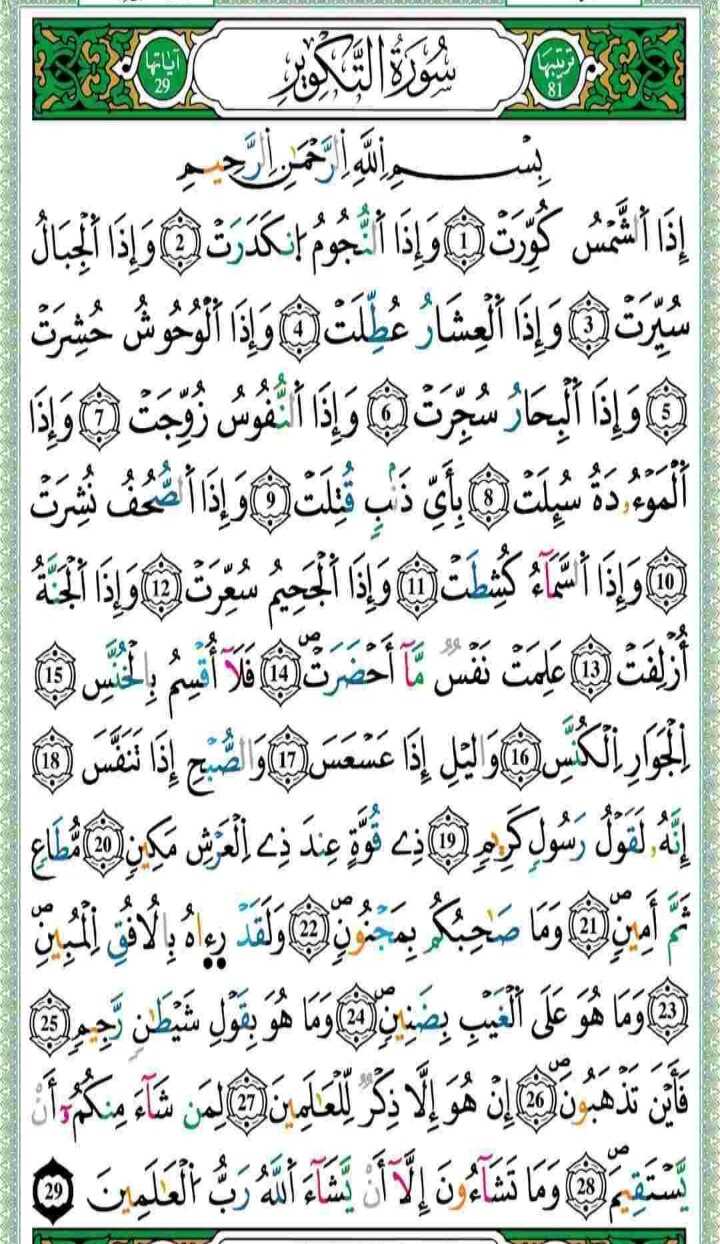 ترتيبها 81 سُورَةُ التَّكْوِيرِ آياتها 29
بِسْمِ اللَّهِ الرَّحْمَٰنِ الرَّحِيمِ
إِذَا اَ۬لشَّمْسُ كُوِّرَتْ 1 وَإِذَا اَ۬لنُّجُومُ اُ۪نكَدَرَتْ 2 وَإِذَا اَ۬لْجِبَالُ
سُيِّرَتْ 3 وَإِذَا اَ۬لْعِشَارُ عُطِّلَتْ 4 وَإِذَا اَ۬لْوُحُوشُ حُشِرَتْ
5 وَإِذَا اَ۬لْبِحَارُ سُجِّرَتْ 6 وَإِذَا اَ۬لنُّفُوسُ زُوِّجَتْ 7 وَإِذَا
اَ۬لْمَوْءُۥدَةُ سُئِلَتْ 8 بِأَيِّ ذَنۢبٍ قُتِلَتْ 9 وَإِذَا اَ۬لصُّحُفُ نُشِرَتْ
10 وَإِذَا اَ۬لسَّمَآءُ كُشِطَتْ 11 وَإِذَا اَ۬لْجَحِيمُ سُعِّرَتْ 12 وَإِذَا اَ۬لْجَنَّةُ
أُزْلِفَتْ 13 عَلِمَتْ نَفْسٌ مَّآ أَحْضَرَتْۖ 14 فَلَآ أُقْسِمُ بِالْخُنَّسِ 15
اِ۬لْجَوَارِ اِ۬لْكُنَّسِ 16 وَاليْلِ إِذَا عَسْعَسَ 17 وَالصُّبْحِ إِذَا تَنَفَّسَ 18
إِنَّهُۥ لَقَوْلُ رَسُولٍ كَرِيمٍ 19 ذِے قُوَّةٍ عِندَ ذِے اِ۬لْعَرْشِ مَكِينٍ 20 مُّطَاعٍ
ثَمَّ أَمِينٍۖ 21 وَمَا صَٰحِبُكُم بِمَجْنُونٍۖ 22 وَلَقَدْ رِء۪اهُ بِالُافُقِ اِ۬لْمُبِينِۖ
23 وَمَا هُوَ عَلَى اَ۬لْغَيْبِ بِضَنِينٍۖ 24 وَمَا هُوَ بِقَوْلِ شَيْطَٰنٍ رَّجِيمٍ 25
فَأَيْنَ تَذْهَبُونَۖ 26 إِنْ هُوَ إِلَّا ذِكْرٌ لِّلْعَٰلَمِينَ 27 لِمَن شَآءَ مِنكُمُۥٓ أَنْ
يَّسْتَقِيمَۖ 28 وَمَا تَشَآءُونَ إِلَّآ أَنْ يَّشَآءَ اَ۬للَّهُ رَبُّ اُ۬لْعَٰلَمِينَ 29